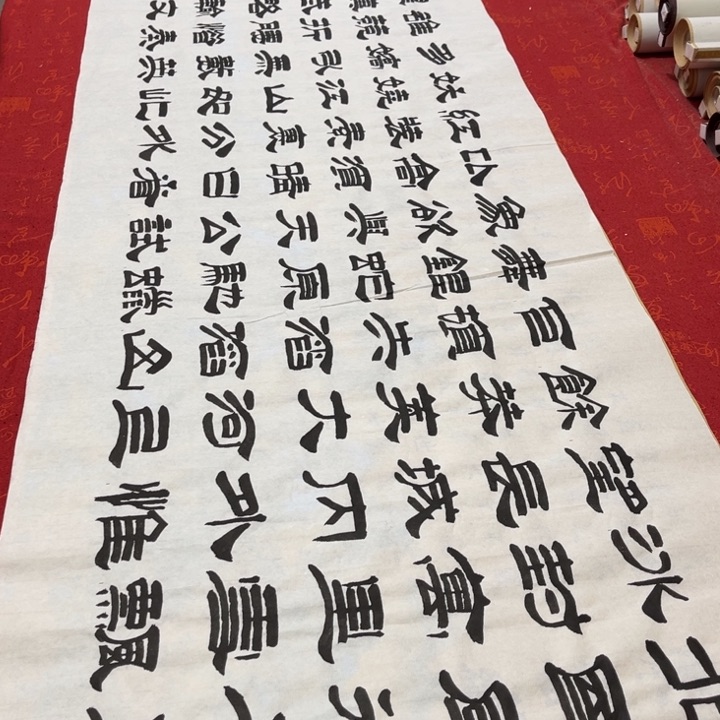 冰封萬里雪飄
望長城內外惟
餘莽莽大河上
下頓失滔滔山
舞銀蛇原馳蠟
象欲與天公試
比高須晴日看
紅裝素裹分外
妖嬈江山如此
多嬌引無數英
雄競折腰惜秦
略輸文